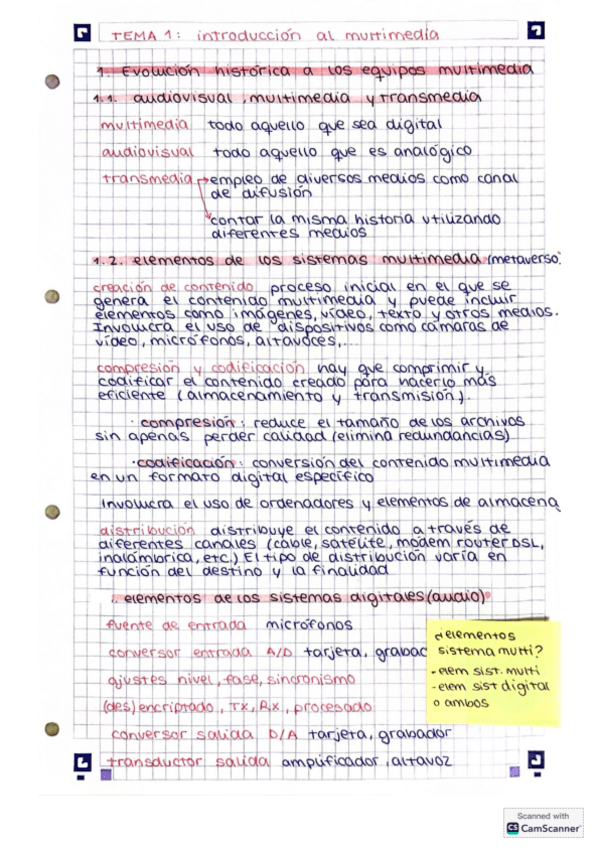 TEMA 1: introducción al multimedia
1. Evolución histórica a los equipos multimedia
1.1. audiovisual, multimedia y transmedia
multimedia todo aquello que sea digital
audiovisual todo aquello que es analógico
transmedia empleo de diversos medios como canal
de difusión
contar la misma historia utilizando
diferentes medios
1.2. elementos de los sistemas multimedia (metaverso)
creación de contenido proceso inicial en el que se
genera el contenido multimedia y puede incluir
elementos como imágenes, vídeo, texto y otros medios.
Involucra el uso de dispositivos como cámaras de
vídeo, micrófonos, altavoces,...
compresión y codificación hay que comprimir y
codificar el contenido creado para hacerlo más
eficiente (almacenamiento y transmisión).
· compresión: reduce el tamaño de los archivos
sin apenas perder calidad (elimina redundancias)
· codificación: conversión del contenido multimedia
en un formato digital específico
Involucra el uso de ordenadores y elementos de almacena
distribución distribuye el contenido a través de
diferentes canales (cable, satélite, módem router DSL,
inalámbrica, etc.) El tipo de distribución varía en
función del destino y la finalidad
elementos de los sistemas digitales (audio)
fuente de entrada micrófonos
conversor entrada A/D tarjeta, grabac
ajustes nivel, fase, sincronismo
(des)encriptado, Tx, Rx, procesado
conversor salida D/A tarjeta, grabador
transductor salida amplificador, altavoz
elementos
sistema multi?
- elem sist. multi
- elem sist digital
o ambos
Scanned with
CS CamScanner